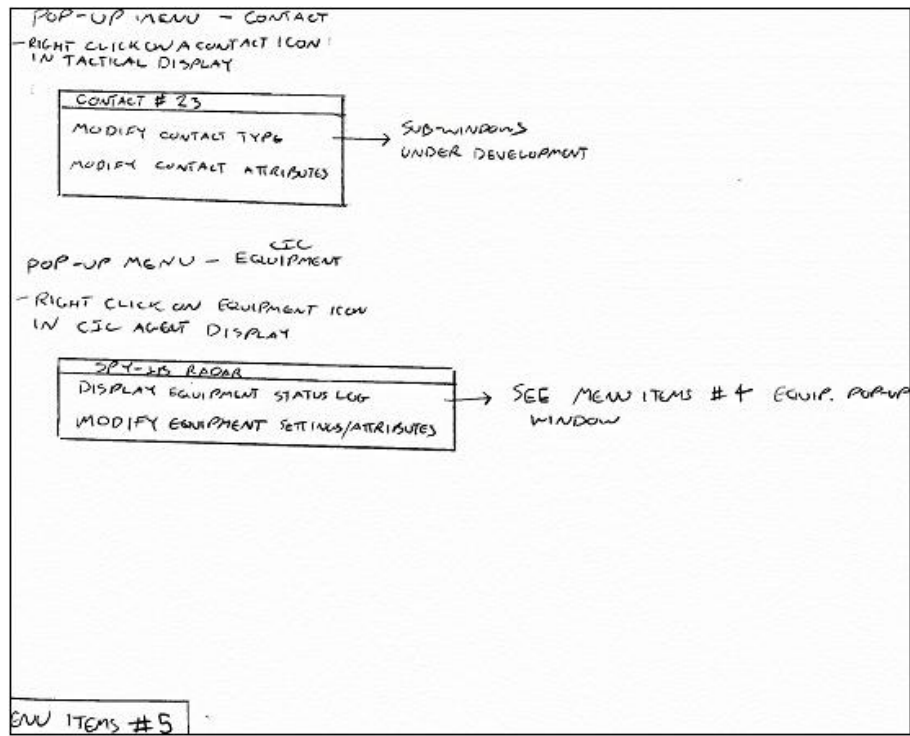 POP-UP MENU - CONTACT
- RIGHT CLICK ON A CONTACT ICON
IN TACTICAL DISPLAY
CONTACT # 23
MODIFY CONTACT TYPE
MODIFY CONTACT ATTRIBUTES
SUB-WINDOWS
UNDER DEVELOPMENT
CIC
POP-UP MENU - EQUIPMENT
- RIGHT CLICK ON EQUIPMENT ICON
IN CIC AGENT DISPLAY
SPY-1B RADAR
DISPLAY EQUIPMENT STATUS LOG
MODIFY EQUIPMENT SETTINGS/ATTRIBUTES
SEE MENU ITEMS # 4 EQUIP. POP-UP
WINDOW
ENU ITEMS #5